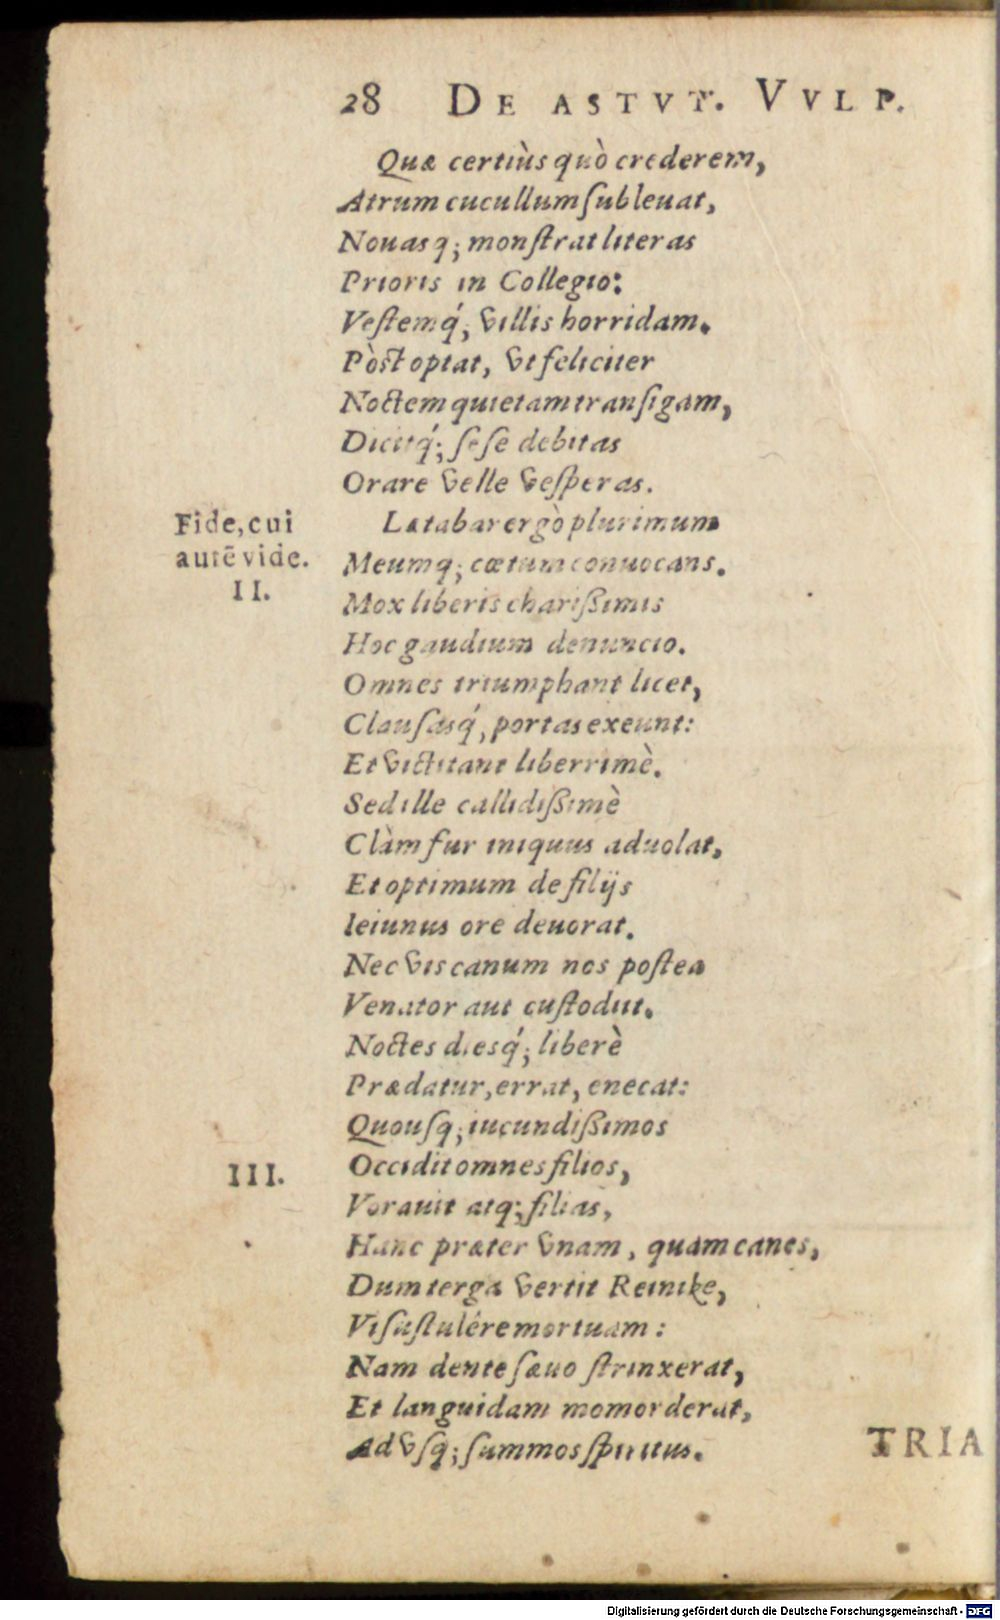 28 DE ASTVT. VVLP.
Quæ certiùs quò crederem,
Atrum cucullum ſubleuat,
Nouasq; monſtrat literas
Prioris in Collegio:
Veſtemq́; villis horridam.
Pòst optat, vt feliciter
Noctem quietam tranſigam,
Dicitq́; ſeſe debitas
Orare velle veſperas.
Fide, cui
autē vide.
II.
Lætabar ergò plurimum
Meumq; cœtum conuocans.
Mox liberis chariſſimis
Hoc gaudium denuncio.
Omnes triumphant licet,
Clauſasq́, portas exeunt:
Et victitant liberrimè.
Sed ille callidiſſimè
Clàm fur iniquus aduolat,
Et optimum de filijs
Ieiunus ore deuorat.
Nec vis canum nos poſtea
Venator aut cuſtodiit.
Noctes diesq́; liberè
Prædatur, errat, enecat:
Quouſq; iucundiſſimos
III.
Occidit omnes filios,
Vorauit atq; filias,
Hanc præter vnam, quam canes,
Dum terga vertit Reinike,
Vi ſuſtulêre mortuam:
Nam dente ſæuo ſtrinxerat,
Et languidam momorderat,
Ad vſq; ſummos ſpiritus.
TRIA
Digitalisierung gefördert durch die Deutsche Forschungsgemeinschaft - DFG